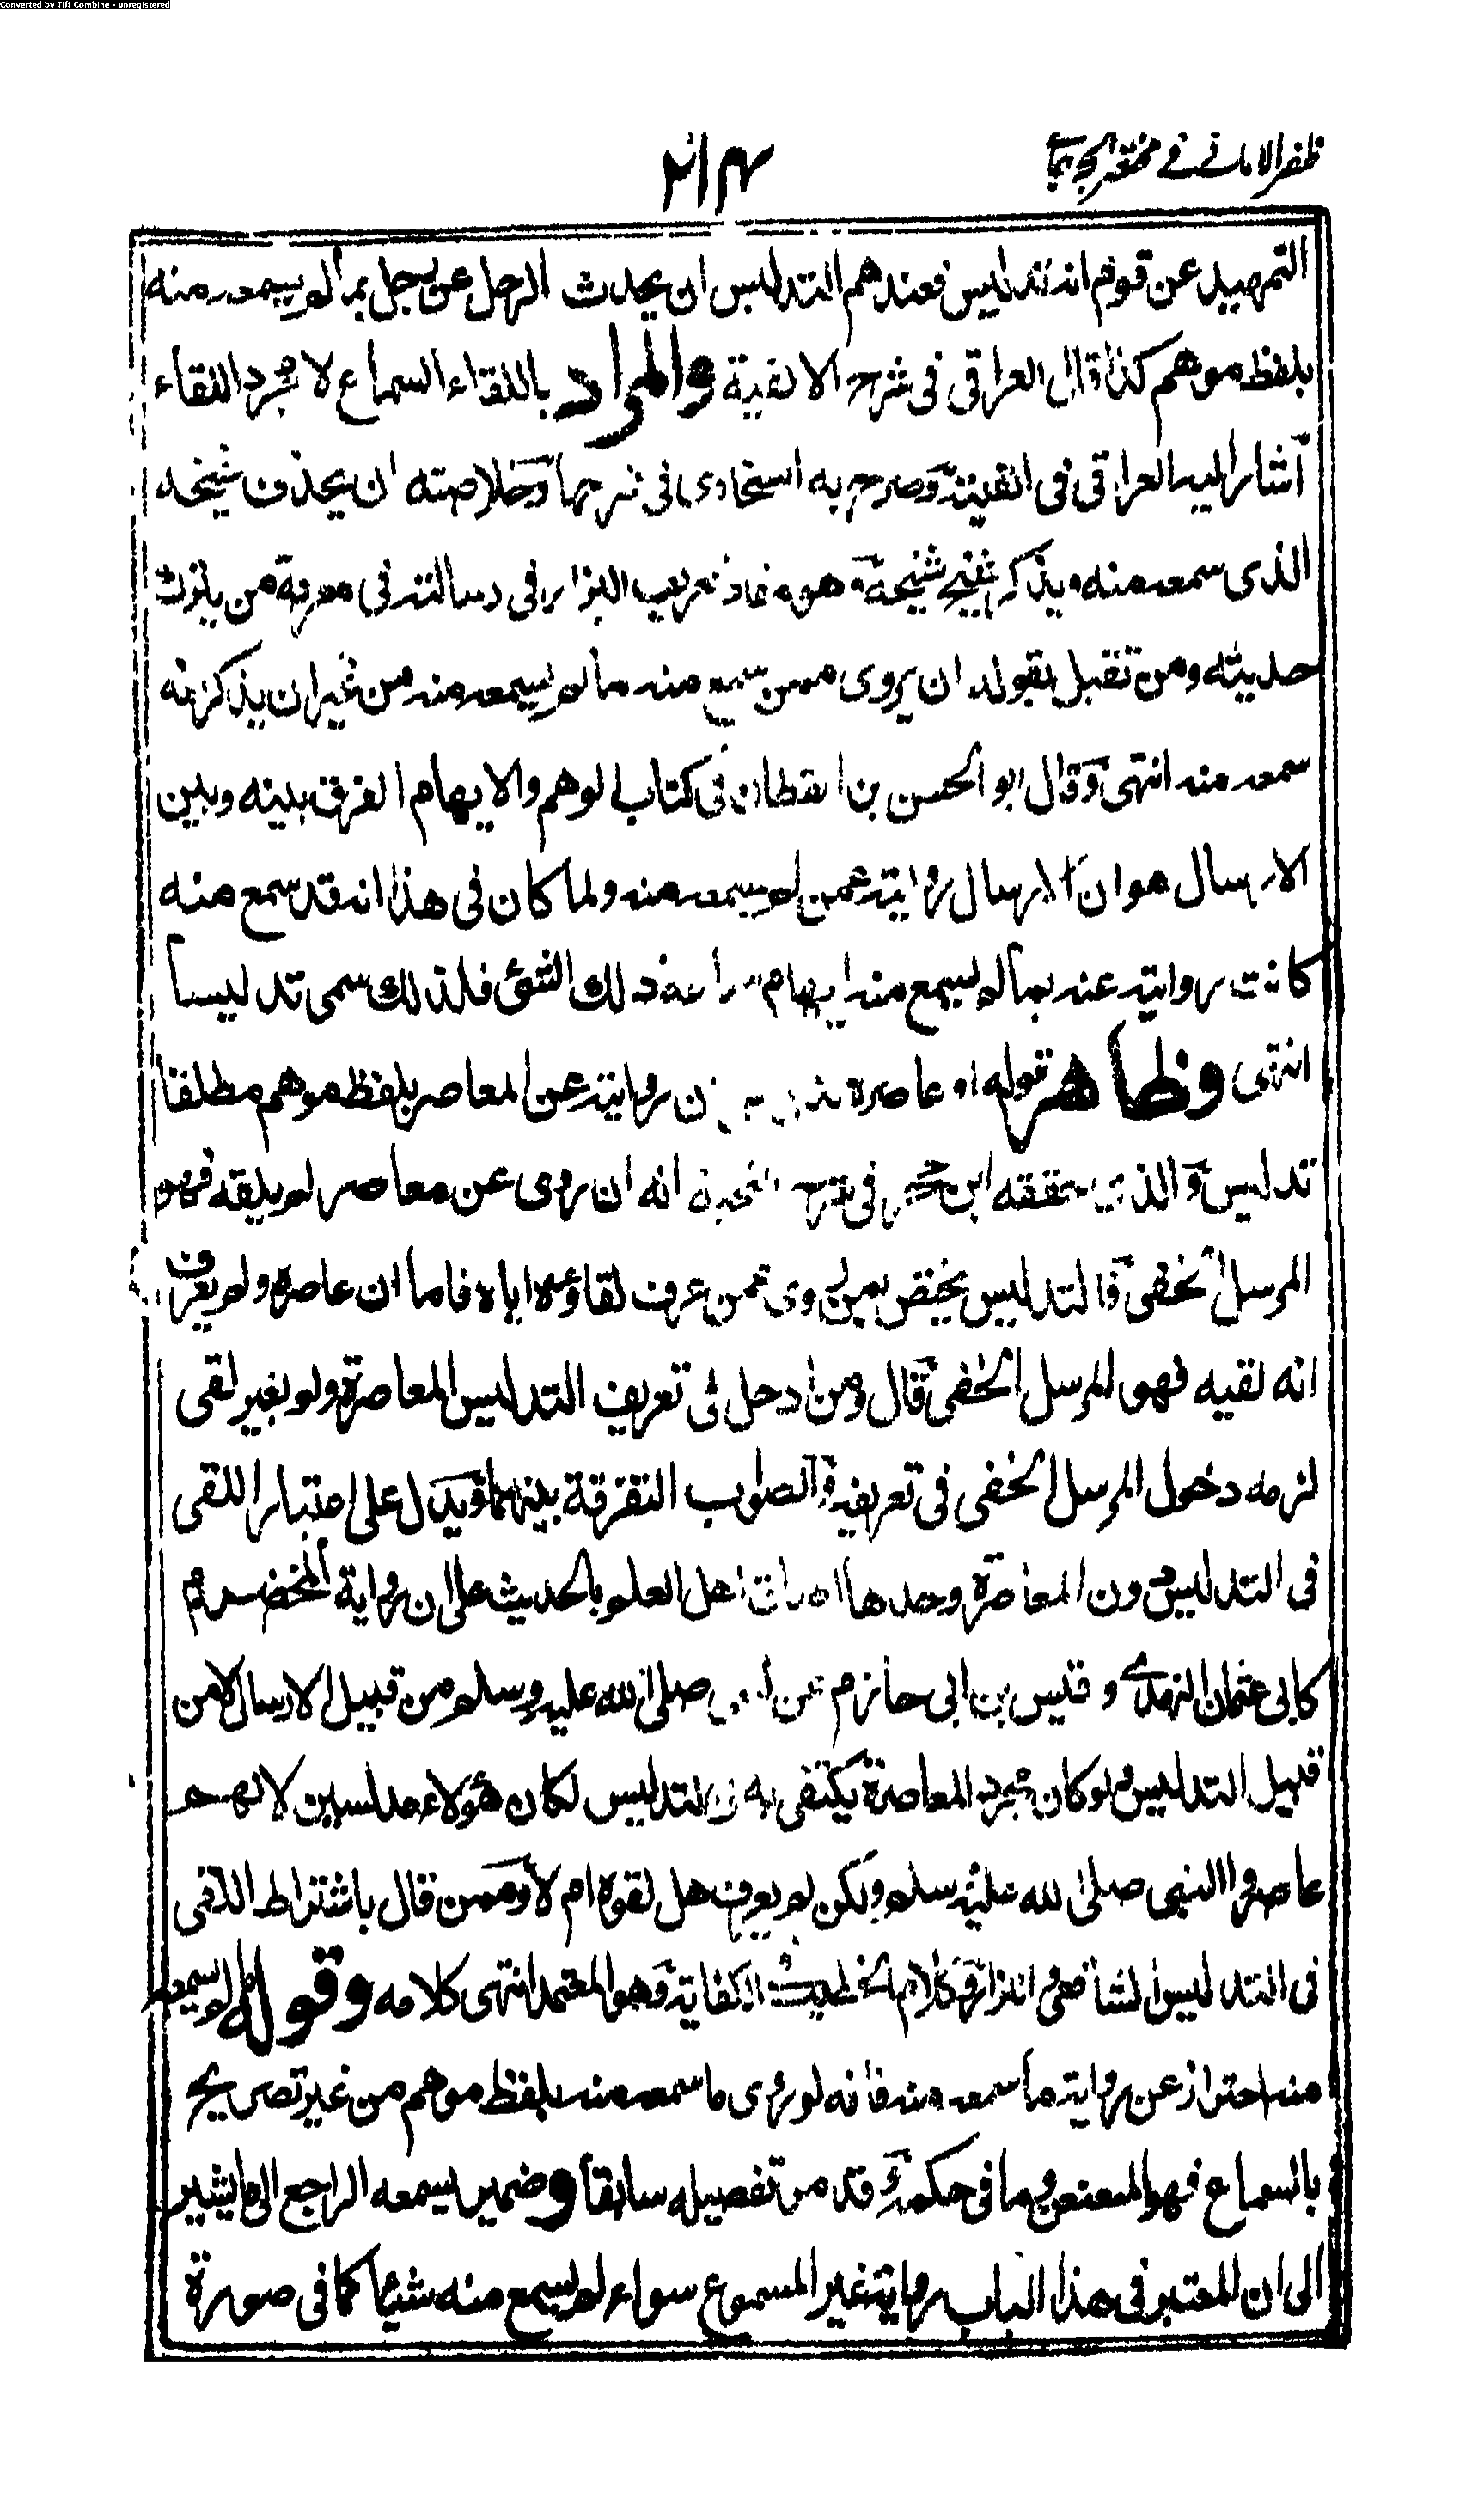 Converted by Tiff Combine - unregistered
ظفر الامانى فى مختصر الجرجانى
٢١٤
التمهيد عن قوم انه تدليس فعندهم التدليس ان يحدث الرجل عن رجل بما لم يسمعه منه
بلفظ موهم كذا قال العراقى فى شرح الالفية والمراد باللقاء السماع لا مجرد اللقاء
اشار اليه العراقى فى الفيته وصرح به السخاوى فى شرحها وخلاصته ان يحذف شيخه
الذى سمعه منه ويذكر شيخ شيخه وهو مفاد تعريف البزار فى رسالته فى معرفة من يترك
حديثه ومن تقبل بقوله ان يروى ممن سمع منه ما لم يسمعه منه من غير ان يذكر انه
سمعه منه انتهى وقال ابو الحسن بن القطان فى كتاب الوهم والايهام الفرق بينه وبين
الارسال هو ان الارسال روايته عمن لم يسمعه منه ولما كان فى هذا انه قد سمع منه
كانت روايته عنه بما لم يسمع منه ايهام سماعه ذلك الشئ فلذلك سمى تدليسا
انتهى وظاهر قوله او عاصره ان روايته عن المعاصر بلفظ موهم مطلقا
تدليس والذى حققه ابن حجر فى شرح النخبة انه ان روى عن معاصر لم يلقه فهو
المرسل الخفى فالتدليس يختص بمن روى عمن عرف لقاؤه اياه فاما ان عاصره ولم يعرف
انه لقيه فهو المرسل الخفى قال ومن ادخل فى تعريف التدليس المعاصرة ولو بغير لقى
لزمه دخول المرسل الخفى فى تعريفه والصواب التفرقة بينهما ويدل على اعتبار اللقى
فى التدليس دون المعاصرة وحدها اطباق اهل العلم بالحديث على ان رواية المخضرم
كابى عثمان النهدى وقيس بن ابى حازم عن النبى صلى الله عليه وسلم من قبيل الارسال لا من
قبيل التدليس ولو كان مجرد المعاصرة يكتفى به فى التدليس لكان هؤلاء مدلسين لانهم
عاصروا النبى صلى الله عليه وسلم ولكن لم يعرف هل لقوه ام لا وممن قال باشتراط اللقى
فى التدليس الشافعى والبزار وكلام الخطيب فى الكفاية وهو المعتمد انتهى كلامه وقوله لم يسمعه
منه احتراز عن رواية ما سمعه منه فانه لو روى ما سمعه منه بلفظ موهم من غير تصريح
بالسماع فهو المعنعن وما فى حكمه وقد مر تفصيله سابقا وضمير يسمعه الراجع الى ما يشير
الى ان المعتبر فى هذا الباب رواية غير المسموع سواء لم يسمع منه شيئا كما فى صورة